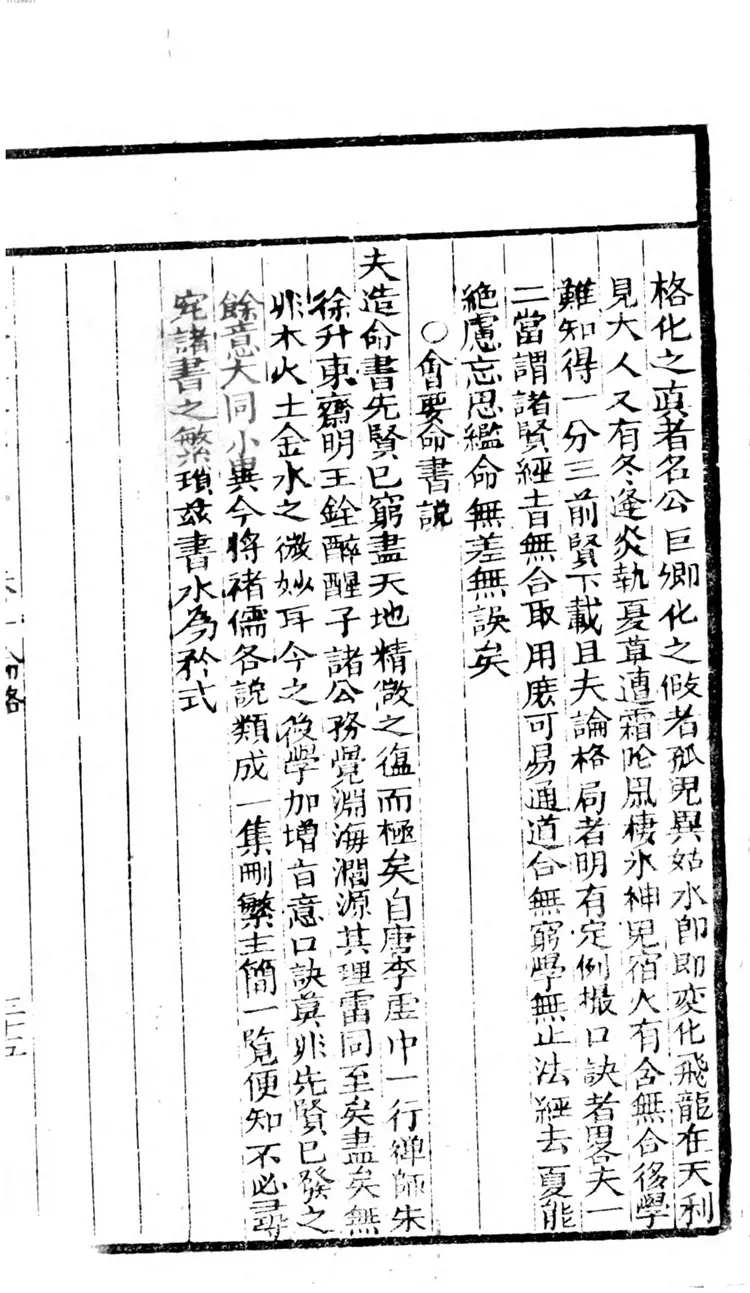 格化之真者名公巨卿化之假者孤児異姑水卽即变化飛龍在天利
見大人又有冬逢炎執憂草遭霜陰凨棲氷神鬼宿火有舎無合後學
難知得一分三前賢下載且夫論格局者明有定例撮口訣者畧夫一
二當謂諸賢經吉無合取用庻可易通道合無窮學無止法經去夏能
絶慮忘思鑑命無差無誤矣
○會要命書説
夫造命書先賢已窮盡天地精微之藴而極矣自唐李虛中一行禅師朱
徐升東齋明王銓醉醒子諸公務覺淵海澗源其理雷同至矣盡矣無
非木火土金水之微妙耳今之後學加增旨意口訣莫非先賢已發之
餘意大同小異今将禇儒各説類成一集刪繁主簡一覧便知不必尋
究諸書之繁瑣兹書水為矜式
命格
三十五